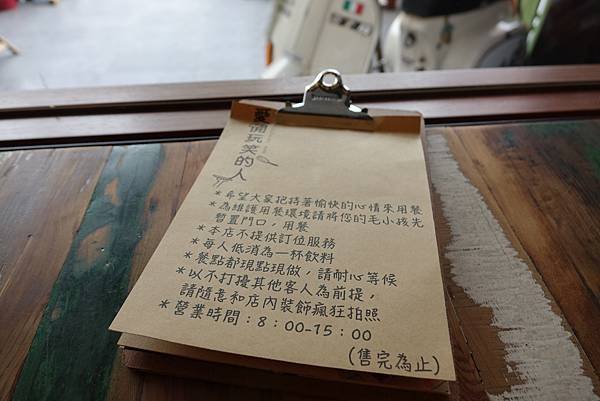 愛開玩笑的人
*希望大家把持著愉快的心情來用餐
*為維護用餐環境請將您的毛小孩先
暫置門口，用餐
*本店不提供訂位服務
*每人低消為一杯飲料
*餐點都現點現做，請耐心等候
*以不打擾其他客人為前提，
請隨意和店內裝飾瘋狂拍照
*營業時間：8：00-15：00
(售完為止)